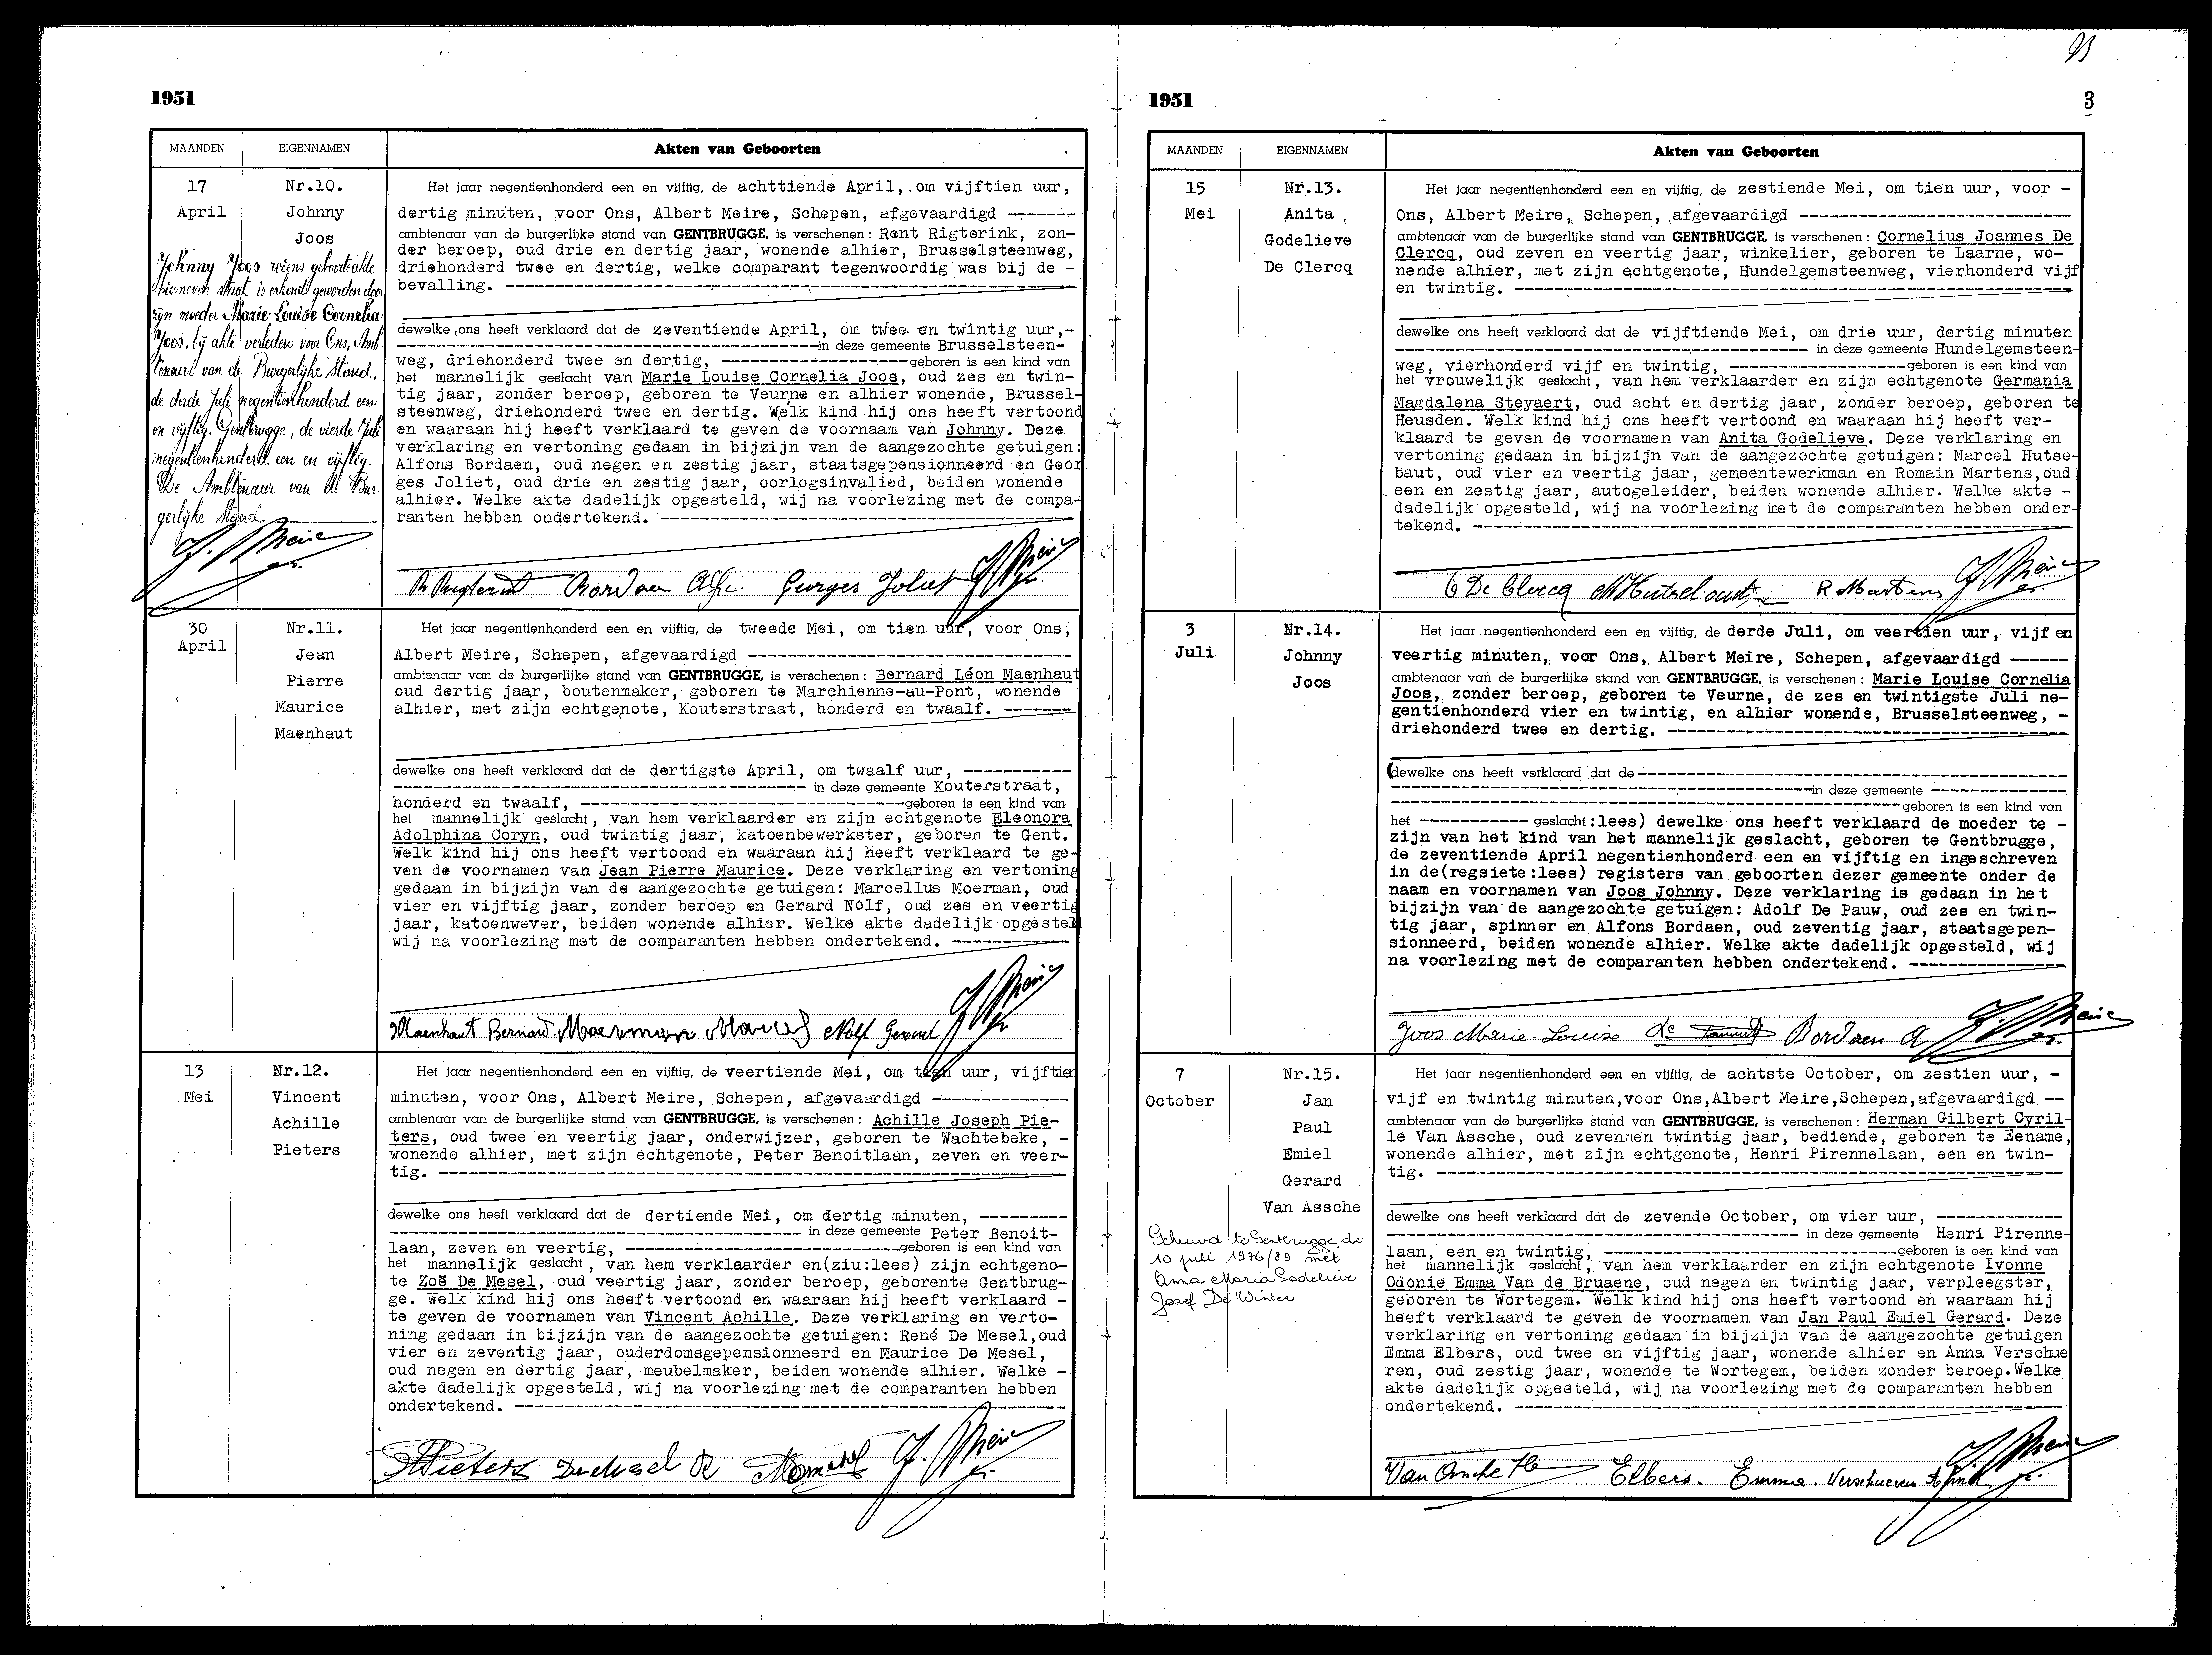 1951
MAANDEN EIGENNAMEN Akten van Geboorten
17
April
Nr.10.
Johnny
Joos
Johnny Joos wiens geboorteakte
hierneven staat is erkend geworden door
zijn moeder Marie Louise Cornelia
Joos, bij akte verleden voor Ons, Amb-
tenaar van de Burgerlijke Stand,
de derde Juli negentienhonderd een
en vijftig. Gentbrugge, de vierde Juli
negentienhonderd een en vijftig.
De Ambtenaar van de Bur-
gerlijke Stand.
Het jaar negentienhonderd een en vijftig, de achttiende April, om vijftien uur,
dertig minuten, voor Ons, Albert Meire, Schepen, afgevaardigd -------
ambtenaar van de burgerlijke stand van GENTBRUGGE, is verschenen: Rent Rigterink, zon-
der beroep, oud drie en dertig jaar, wonende alhier, Brusselsteenweg,
driehonderd twee en dertig, welke comparant tegenwoordig was bij de -
bevalling. -------
dewelke ons heeft verklaard dat de zeventiende April, om twee en twintig uur,-
-------in deze gemeente Brusselsteen-
weg, driehonderd twee en dertig, -------geboren is een kind van
het mannelijk geslacht van Marie Louise Cornelia Joos, oud zes en twin-
tig jaar, zonder beroep, geboren te Veurne en alhier wonende, Brussel-
steenweg, driehonderd twee en dertig. Welk kind hij ons heeft vertoond
en waaraan hij heeft verklaard te geven de voornaam van Johnny. Deze
verklaring en vertoning gedaan in bijzijn van de aangezochte getuigen:
Alfons Bordaen, oud negen en zestig jaar, staatsgepensionneerd en Geor
ges Joliet, oud drie en zestig jaar, oorlogsinvalied, beiden wonende
alhier. Welke akte dadelijk opgesteld, wij na voorlezing met de compa-
ranten hebben ondertekend. -------
R Rigterink Bordaen Georges Joliet A. Meire
30
April
Nr.11.
Jean
Pierre
Maurice
Maenhaut
Het jaar negentienhonderd een en vijftig, de tweede Mei, om tien uur, voor Ons,
Albert Meire, Schepen, afgevaardigd -------
ambtenaar van de burgerlijke stand van GENTBRUGGE, is verschenen: Bernard Léon Maenhaut
oud dertig jaar, boutenmaker, geboren te Marchienne-au-Pont, wonende
alhier, met zijn echtgenote, Kouterstraat, honderd en twaalf. -------
dewelke ons heeft verklaard dat de dertigste April, om twaalf uur, -------
------- in deze gemeente Kouterstraat,
honderd en twaalf, -------geboren is een kind van
het mannelijk geslacht, van hem verklaarder en zijn echtgenote Eleonora
Adolphina Coryn, oud twintig jaar, katoenbewerkster, geboren te Gent.
Welk kind hij ons heeft vertoond en waaraan hij heeft verklaard te ge-
ven de voornamen van Jean Pierre Maurice. Deze verklaring en vertoning
gedaan in bijzijn van de aangezochte getuigen: Marcellus Moerman, oud
vier en vijftig jaar, zonder beroep en Gerard Nolf, oud zes en veertig
jaar, katoenwever, beiden wonende alhier. Welke akte dadelijk opgesteld
wij na voorlezing met de comparanten hebben ondertekend. -------
Maenhaut Bernard Moerman Marcel Nolf Gerard A. Meire
13
Mei
Nr.12.
Vincent
Achille
Pieters
Het jaar negentienhonderd een en vijftig, de veertiende Mei, om tien uur, vijftien
minuten, voor Ons, Albert Meire, Schepen, afgevaardigd -------
ambtenaar van de burgerlijke stand van GENTBRUGGE, is verschenen: Achille Joseph Pie-
ters, oud twee en veertig jaar, onderwijzer, geboren te Wachtebeke, -
wonende alhier, met zijn echtgenote, Peter Benoitlaan, zeven en veer-
tig. -------
dewelke ons heeft verklaard dat de dertiende Mei, om dertig minuten, -------
------- in deze gemeente Peter Benoit-
laan, zeven en veertig, -------geboren is een kind van
het mannelijk geslacht, van hem verklaarder en(ziu:lees) zijn echtgeno-
te Zoë De Mesel, oud veertig jaar, zonder beroep, geborente Gentbrug-
ge. Welk kind hij ons heeft vertoond en waaraan hij heeft verklaard -
te geven de voornamen van Vincent Achille. Deze verklaring en verto-
ning gedaan in bijzijn van de aangezochte getuigen: René De Mesel,oud
vier en zeventig jaar, ouderdomsgepensionneerd en Maurice De Mesel,
oud negen en dertig jaar, meubelmaker, beiden wonende alhier. Welke -
akte dadelijk opgesteld, wij na voorlezing met de comparanten hebben
ondertekend. -------
A Pieters De Mesel R A. Meire
1951
3
MAANDEN EIGENNAMEN Akten van Geboorten
15
Mei
Nr.13.
Anita
Godelieve
De Clercq
Het jaar negentienhonderd een en vijftig, de zestiende Mei, om tien uur, voor -
Ons, Albert Meire, Schepen, afgevaardigd -------
ambtenaar van de burgerlijke stand van GENTBRUGGE, is verschenen: Cornelius Joannes De
Clercq, oud zeven en veertig jaar, winkelier, geboren te Laarne, wo-
nende alhier, met zijn echtgenote, Hundelgemsteenweg, vierhonderd vijf
en twintig. -------
dewelke ons heeft verklaard dat de vijftiende Mei, om drie uur, dertig minuten
------- in deze gemeente Hundelgemsteen-
weg, vierhonderd vijf en twintig, -------geboren is een kind van
het vrouwelijk geslacht, van hem verklaarder en zijn echtgenote Germania
Magdalena Steyaert, oud acht en dertig jaar, zonder beroep, geboren te
Heusden. Welk kind hij ons heeft vertoond en waaraan hij heeft ver-
klaard te geven de voornamen van Anita Godelieve. Deze verklaring en
vertoning gedaan in bijzijn van de aangezochte getuigen: Marcel Hutse-
baut, oud vier en veertig jaar, gemeentewerkman en Romain Martens,oud
een en zestig jaar, autogeleider, beiden wonende alhier. Welke akte -
dadelijk opgesteld, wij na voorlezing met de comparanten hebben onder-
tekend. -------
C De Clercq M Hutsebaut R Martens A. Meire
3
Juli
Nr.14.
Johnny
Joos
Het jaar negentienhonderd een en vijftig, de derde Juli, om veertien uur, vijf en
veertig minuten, voor Ons, Albert Meire, Schepen, afgevaardigd ------
ambtenaar van de burgerlijke stand van GENTBRUGGE, is verschenen: Marie Louise Cornelia
Joos, zonder beroep, geboren te Veurne, de zes en twintigste Juli ne-
gentienhonderd vier en twintig, en alhier wonende, Brusselsteenweg, -
driehonderd twee en dertig. -------
(dewelke ons heeft verklaard dat de -------
-------in deze gemeente -------
-------geboren is een kind van
het ------- geslacht:lees) dewelke ons heeft verklaard de moeder te -
zijn van het kind van het mannelijk geslacht, geboren te Gentbrugge,
de zeventiende April negentienhonderd een en vijftig en ingeschreven
in de(regsiete:lees) registers van geboorten dezer gemeente onder de
naam en voornamen van Joos Johnny. Deze verklaring is gedaan in het
bijzijn van de aangezochte getuigen: Adolf De Pauw, oud zes en twin-
tig jaar, spinner en Alfons Bordaen, oud zeventig jaar, staatsgepen-
sionneerd, beiden wonende alhier. Welke akte dadelijk opgesteld, wij
na voorlezing met de comparanten hebben ondertekend. -------
Joos Marie-Louise Bordaen A A. Meire
7
October
Nr.15.
Jan
Paul
Emiel
Gerard
Van Assche
Gehuwd te Gentbrugge, de
10 juli 1976/89 met
Anna Maria Godelieve
Josef De Winter
Het jaar negentienhonderd een en vijftig, de achtste October, om zestien uur, -
vijf en twintig minuten,voor Ons,Albert Meire,Schepen,afgevaardigd --
ambtenaar van de burgerlijke stand van GENTBRUGGE, is verschenen: Herman Gilbert Cyril-
le Van Assche, oud zevennen twintig jaar, bediende, geboren te Eename,
wonende alhier, met zijn echtgenote, Henri Pirennelaan, een en twin-
tig. -------
dewelke ons heeft verklaard dat de zevende October, om vier uur, -------
------- in deze gemeente Henri Pirenne-
laan, een en twintig, -------geboren is een kind van
het mannelijk geslacht, van hem verklaarder en zijn echtgenote Ivonne
Odonie Emma Van de Bruaene, oud negen en twintig jaar, verpleegster,
geboren te Wortegem. Welk kind hij ons heeft vertoond en waaraan hij
heeft verklaard te geven de voornamen van Jan Paul Emiel Gerard. Deze
verklaring en vertoning gedaan in bijzijn van de aangezochte getuigen
Emma Elbers, oud twee en vijftig jaar, wonende alhier en Anna Verschue
ren, oud zestig jaar, wonende te Wortegem, beiden zonder beroep.Welke
akte dadelijk opgesteld, wij na voorlezing met de comparanten hebben
ondertekend. -------
Van Assche H Elbers. Emma. Verschueren A. Meire